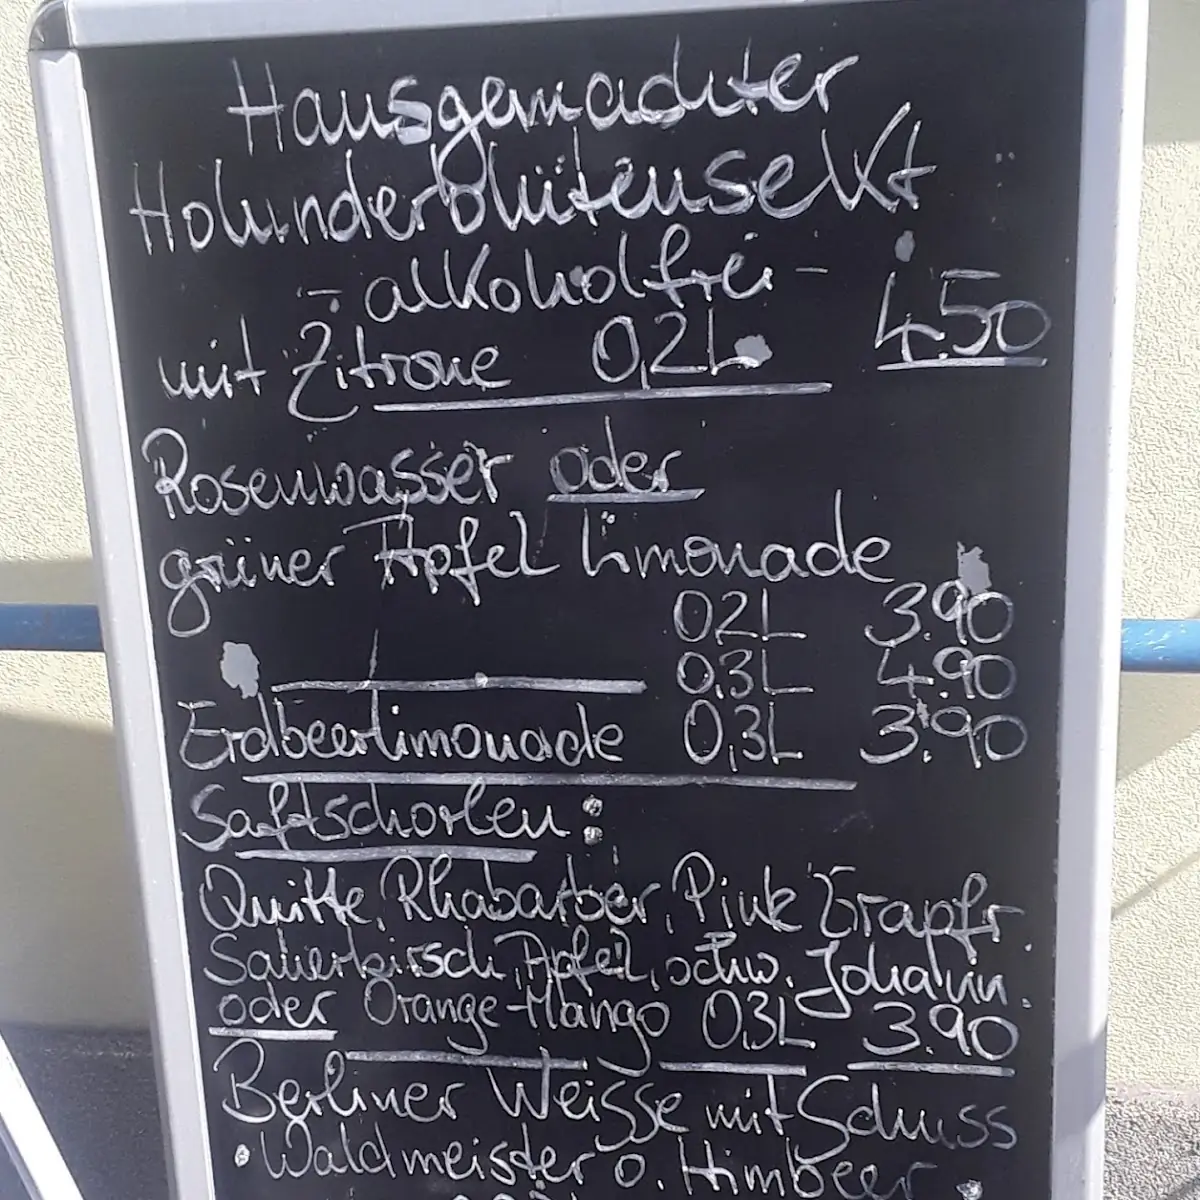 Hausgemachter
Holunderblütensekt
- alkoholfrei -
mit Zitrone 0,2L 4.50
Rosenwasser oder
grüner Apfel Limonade
0,2L 3.90
0,3L 4.90
Erdbeerlimonade 0,3L 3.90
Saftschorlen:
Quitte, Rhabarber, Pink Grapfr.
Sauerkirsch, Apfel, schw. Johann.
oder Orange-Mango 0,3L 3.90
Berliner Weisse mit Schuss
• Waldmeister o. Himbeer •